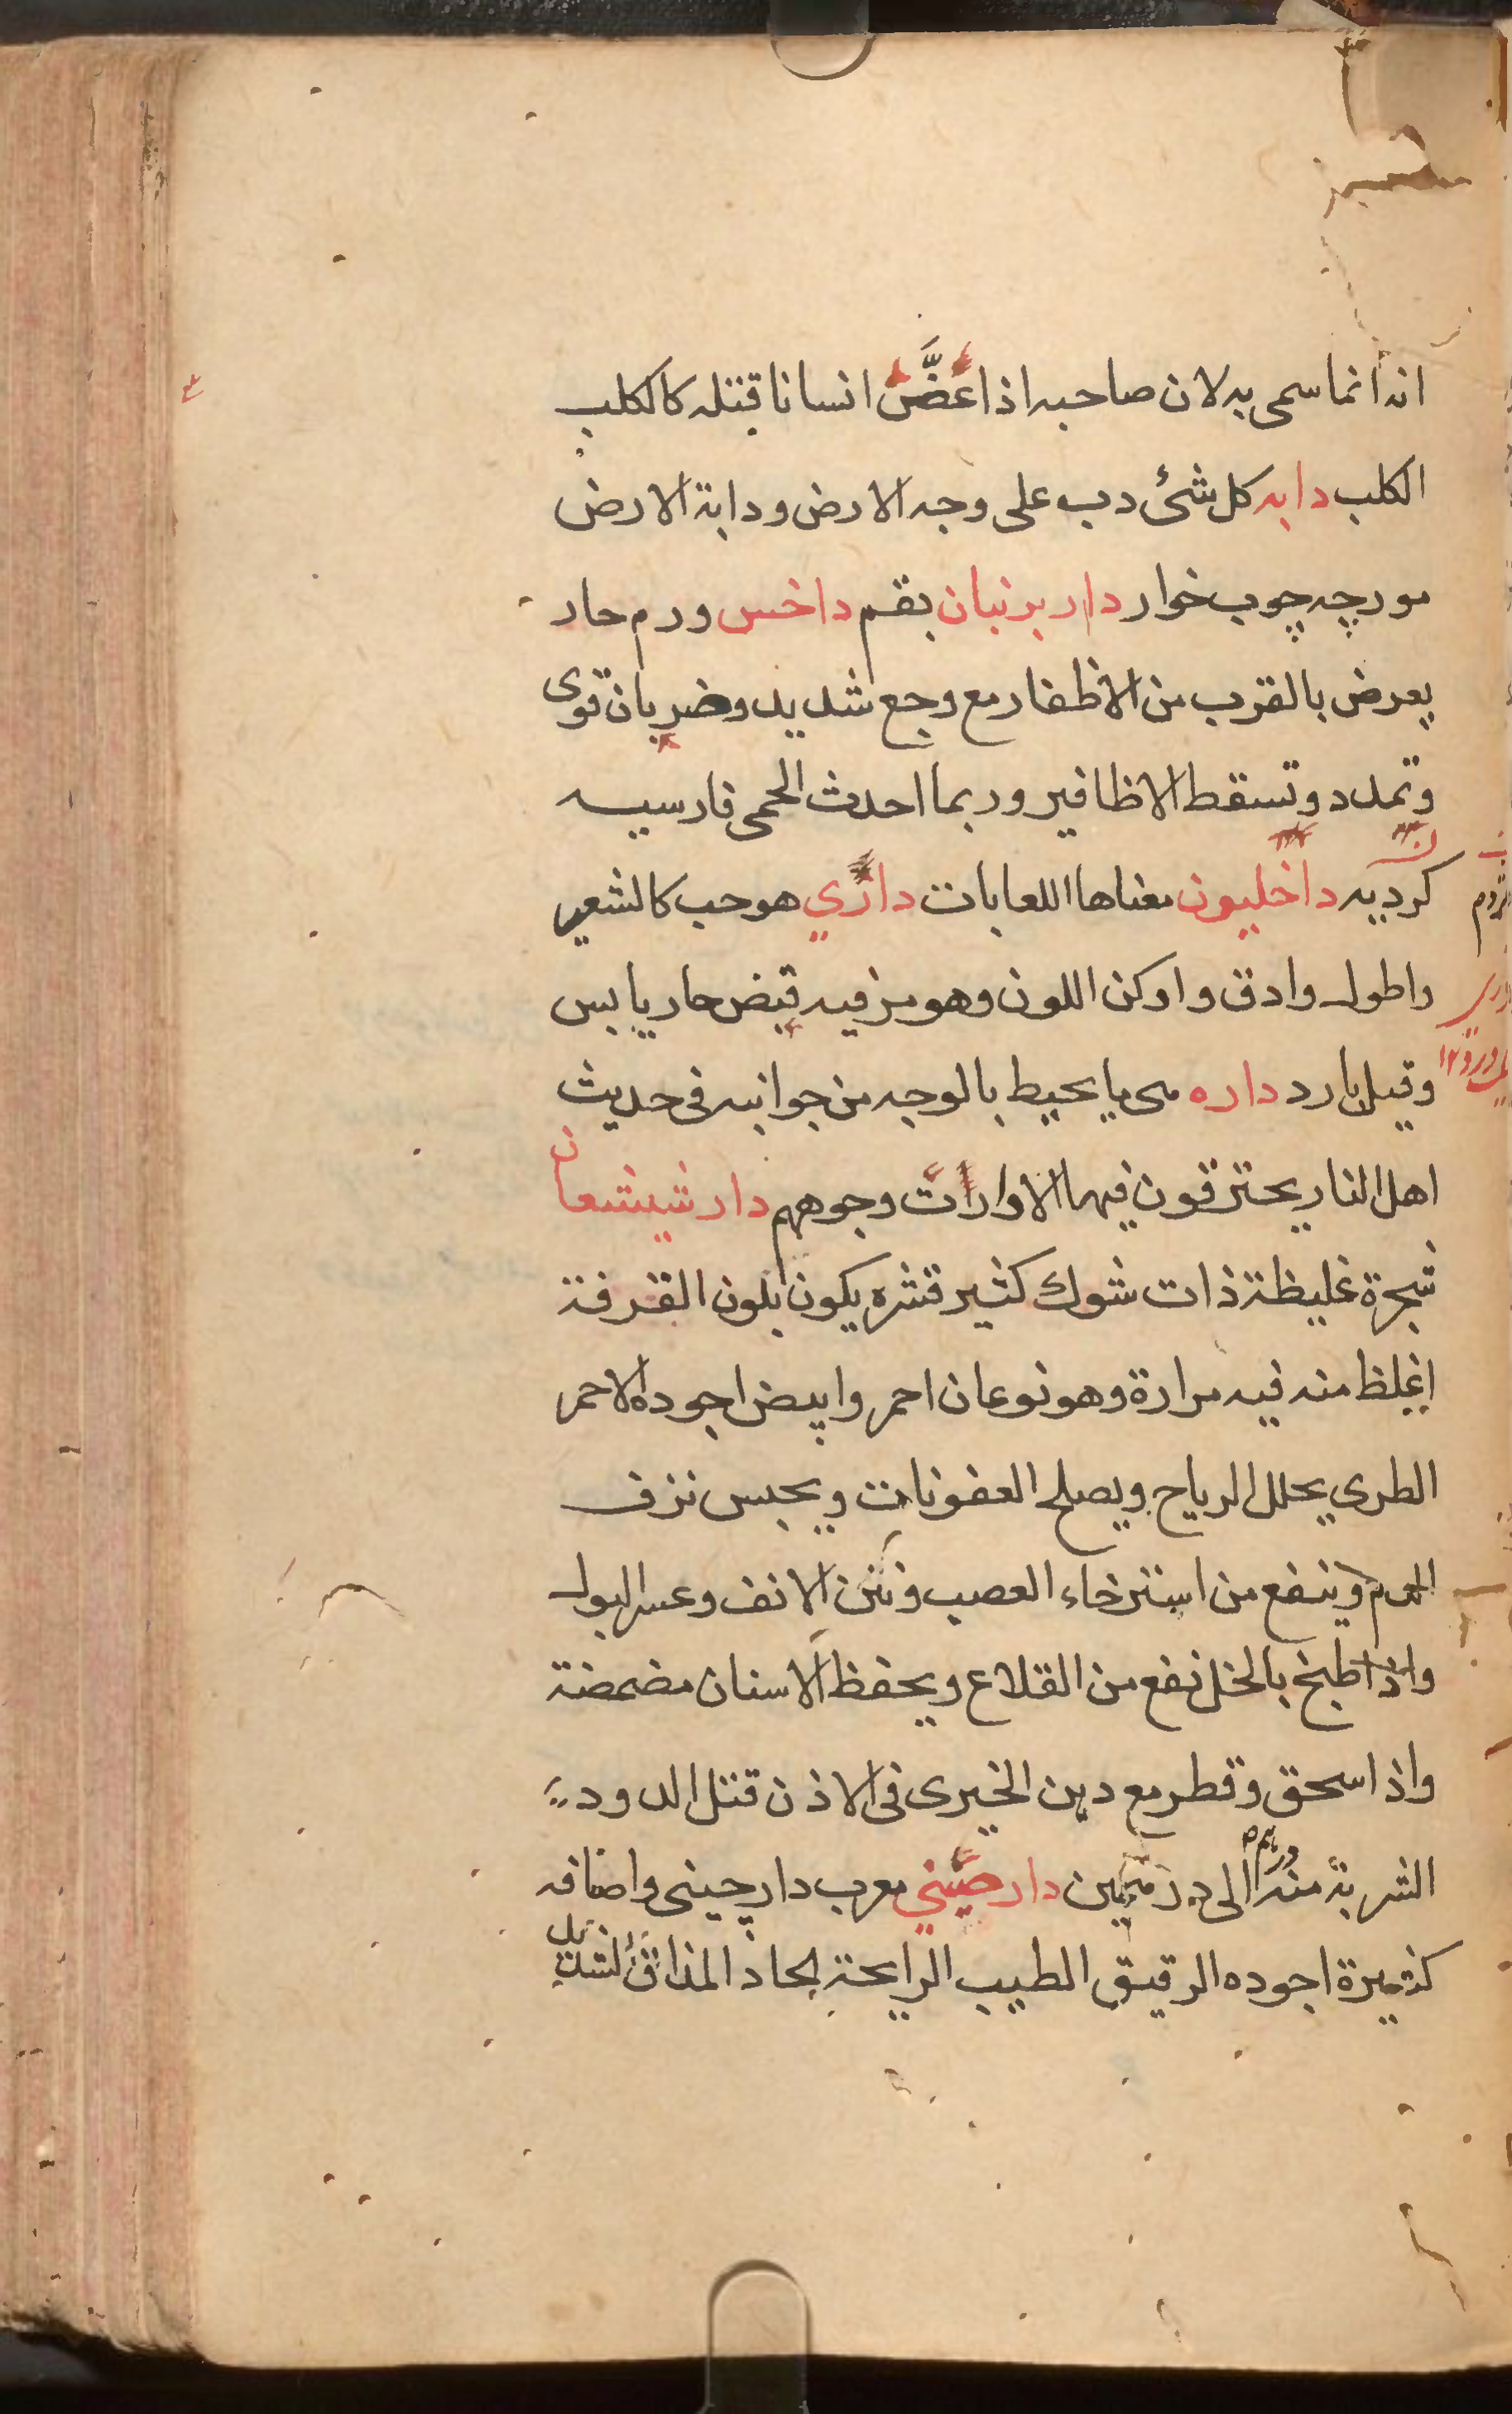 انه انما سمى به لان صاحبه اذا عَضَّ انسانا قتله كالكلب
الكلب دابه كل شئ دب على وجه الارض ودابة الارض
مورچه چوب خوار دار برنيان بقم داخس ورم حار
يعرض بالقرب من الاظفار مع وجع شديد وضربان قوى
وتمدد وتسقط الاظافير وربما احدث الحمى فارسيه
كرديه داخليون معناها اللعابات داذي هو حب كالشعير
واطول وادق واوكن اللون وهو مر فيه قبض حار يابس
وقيل بارد داره هى ما يحيط بالوجه من جوانبه فى حديث
اهل النار يحترقون فيها الا دارات وجوههم دارشيشعان
شجرة غليظة ذات شوك كثير قشره يكون بلون القرفة
اغلظ منه فيه مرارة وهو نوعان احمر وابيض اجوده الاحمر
الطرى يحلل الرياح ويصلح العفونات ويحبس نزف
الدم وينفع من استرخاء العصب ونتن الانف وعسر البول
واذا طبخ بالخل نفع من القلاع ويحفظ الاسنان مضمضة
واذا سحق وقطر مع دهن الخيرى فى الاذن قتل الدود
الشربة منه درهم الى درهمين دارصيني معرب دارچينى واصنافه
كثيرة اجوده الرقيق الطيب الرايحة الحاد المذاق الشديد